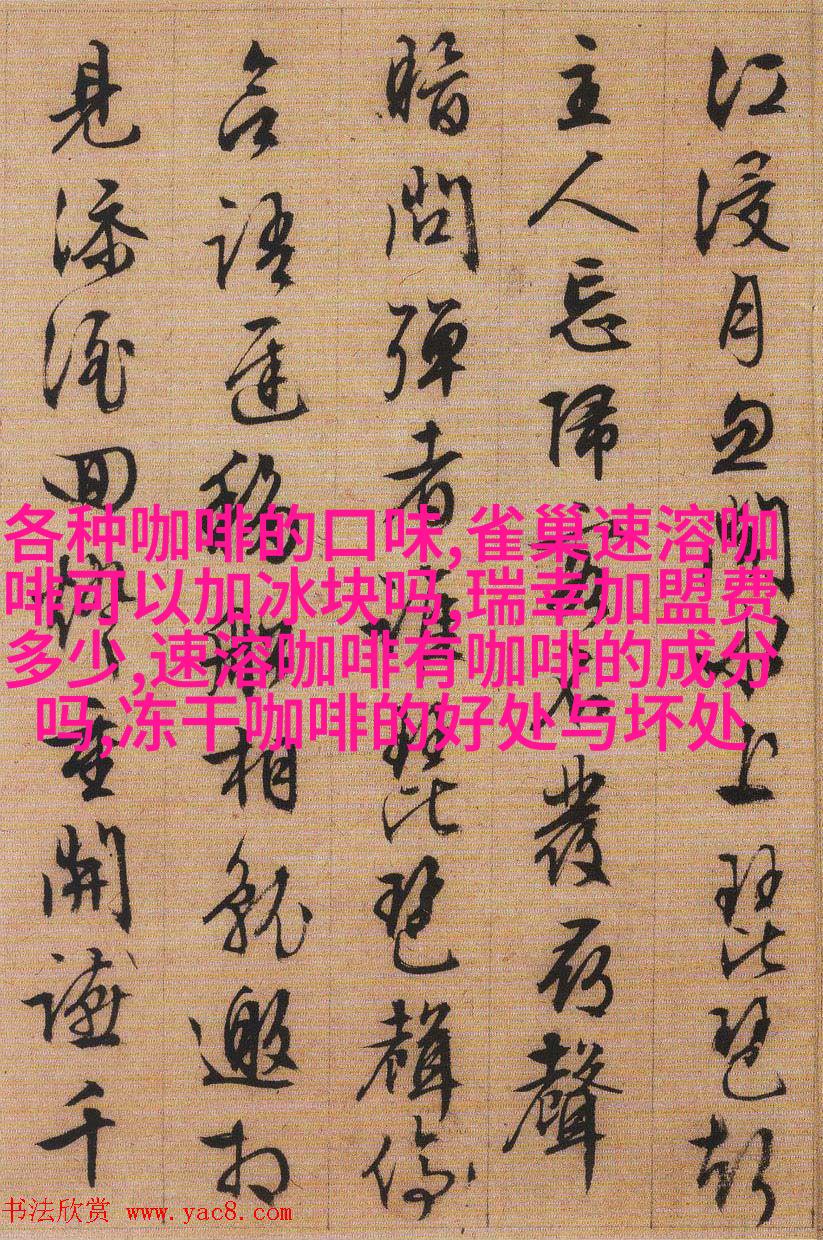 江浸月忽聞水上琵琶
主人忘歸客不發尋聲
暗問彈者誰琵琶聲停
語遲移船相就邀相
見添酒回燈重開讌千
各种咖啡的口味,雀巢速溶咖
啡可以加冰块吗,瑞幸加盟费
多少,速溶咖啡有咖啡的成分
吗,冻干咖啡的好处与坏处
书法欣赏 www.yac8.com